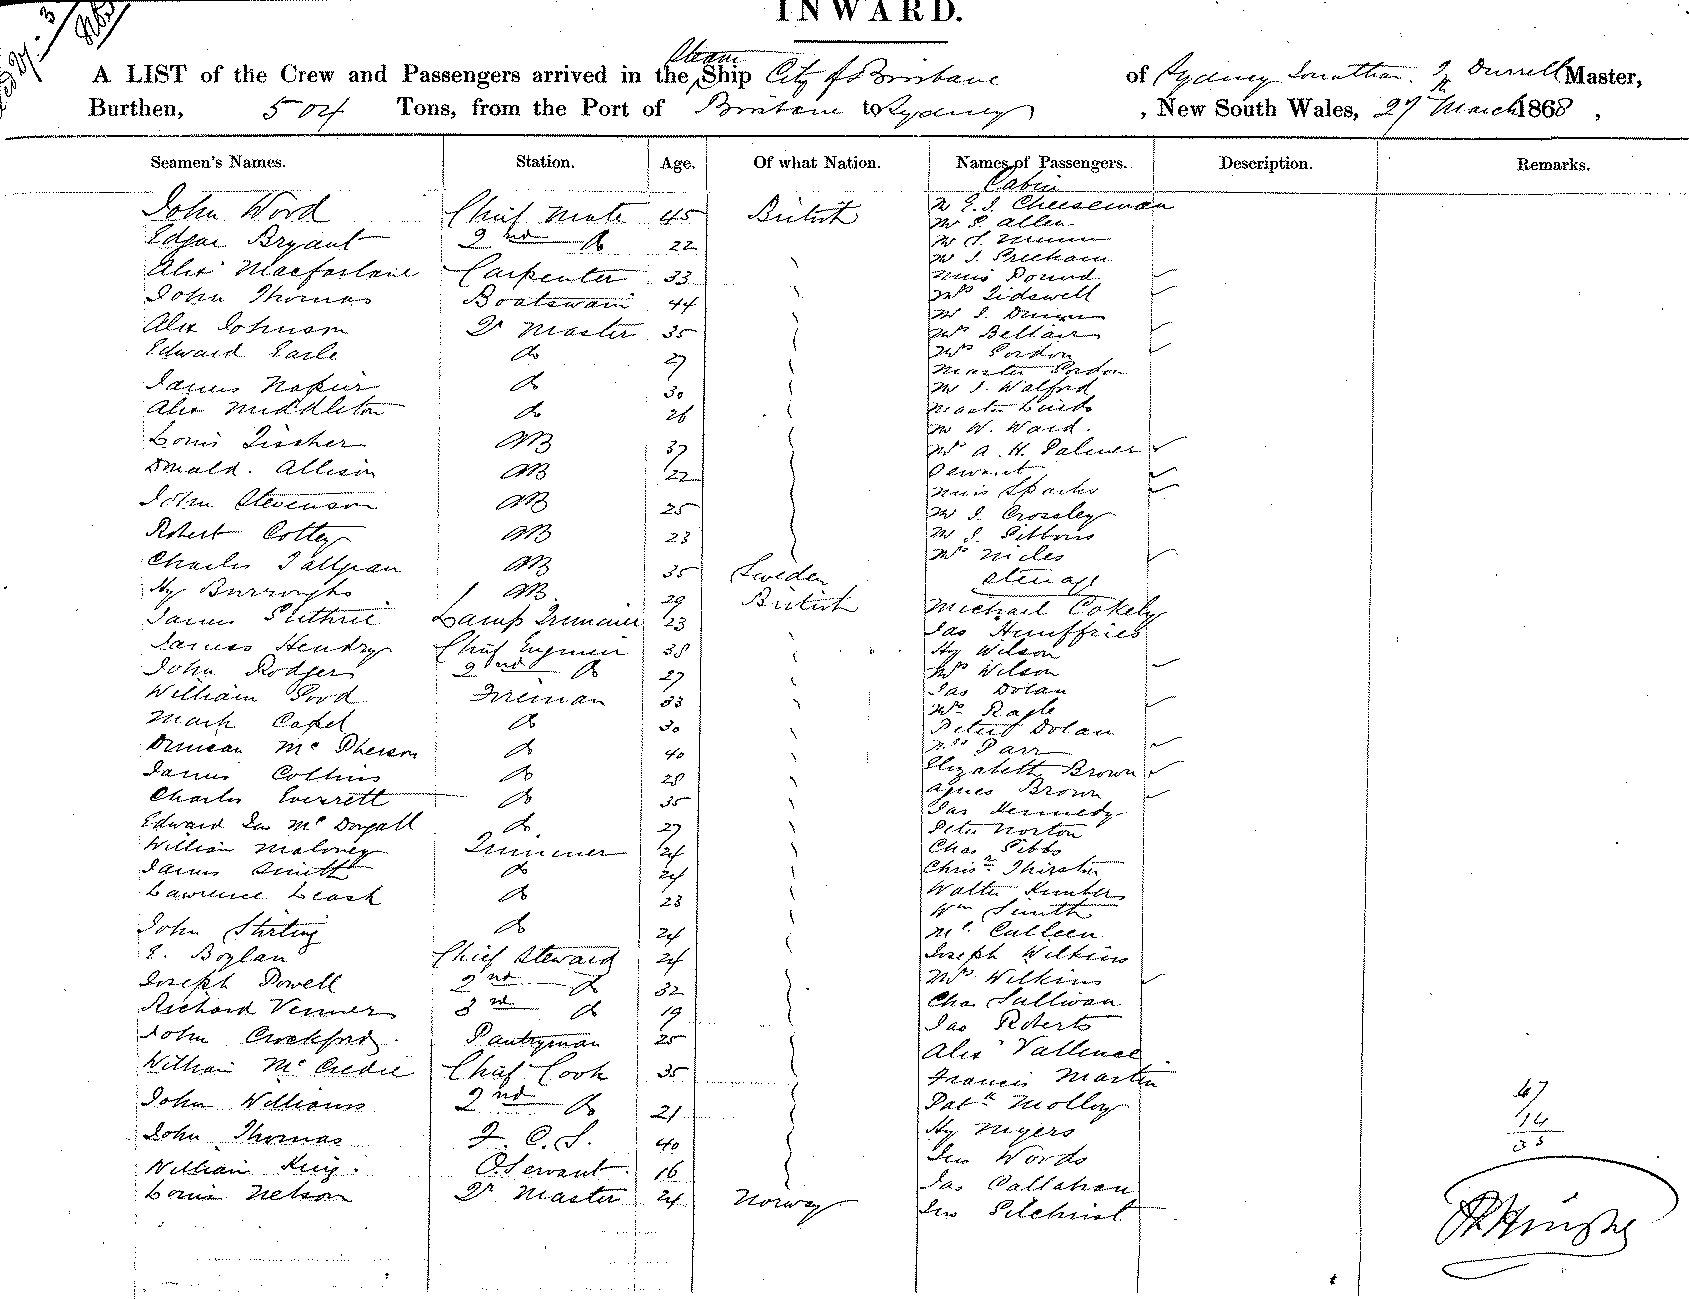 INWARD.
Steam
A LIST of the Crew and Passengers arrived in the Ship City of Brisbane of Sydney Jonathan Durrell Master,
Burthen, 504 Tons, from the Port of Brisbane to Sydney , New South Wales, 27 March 1868 ,
Seamen's Names. Station. Age. Of what Nation. Names of Passengers. Description. Remarks.
Cabin
John Wood Chief Mate 45 British Mr Cheeseman
Mr Allen
Edgar Bryant 2nd Do 22
Alex Macfarlane Carpenter 33
Miss Pound
John Thomas Boatswain 44 Mrs Tidswell
Alex Johnson Qr Master 35 Mrs Bellair
Edward Earle Do 27 Mrs Gordon
Master Gordon
James Napier Do 30 Mr J. Walford
Alex Middleton Do 26 Master
Mr W. Ward.
Louis Tischer AB 37 Mrs A. H. Palmer
Donald Allison AB 22 Servant
Miss Sparks
John Stevenson AB 25 Mr J. Crossley
Robert Cottey AB 23 Mr J. Gibbons
Mrs Nicles
Charles AB 35 Sweden Steerage
Hy Burroughs AB 29 British Michael Cokely
James Guthrie Lamp Trimmer 23 Jas Humffries
James Hendry Chief Engineer 38 Hy Wilson
John Rodger 2nd Do 27 Mrs Wilson
Jas Dolan
William Good Fireman 33 Mrs
Mark Capel Do 30 Peter Dolan
Duncan McPherson Do 40 Mrs Parr
James Collins Do 28 Elizabeth Brown
Charles Everett Do 35 Agnes Brown
Jas Kennedy
Edward Jno McDougall Do 27 Peter Norton
William Maloney Trimmer 24 Chas Gibbs
James Smith Do 24 Chrisr
Lawrence Leask Do 23 Walter Kimber
Wm Smith
John Stirling Do 24 Mc Culleen
E. Boylan Chief Steward 24 Joseph Wilkins
Joseph Powell 2nd Do 32 Mrs Wilkins
Richard Venner 3rd Do 19 Chas Sullivan
Jas Roberts
John Crockford Pantryman 25
Alex Vallence
William McCredie Chief Cook 35 Francis Martin
John Williams 2nd Do 21 Patk Molloy
John Thomas F. C. S. 40 Hy Myers
Jno Words
William King O.Servant 16 Jas Callahan
Louis Nelson Qr Master 24 Norway Jno Gilchrist
47
14
33